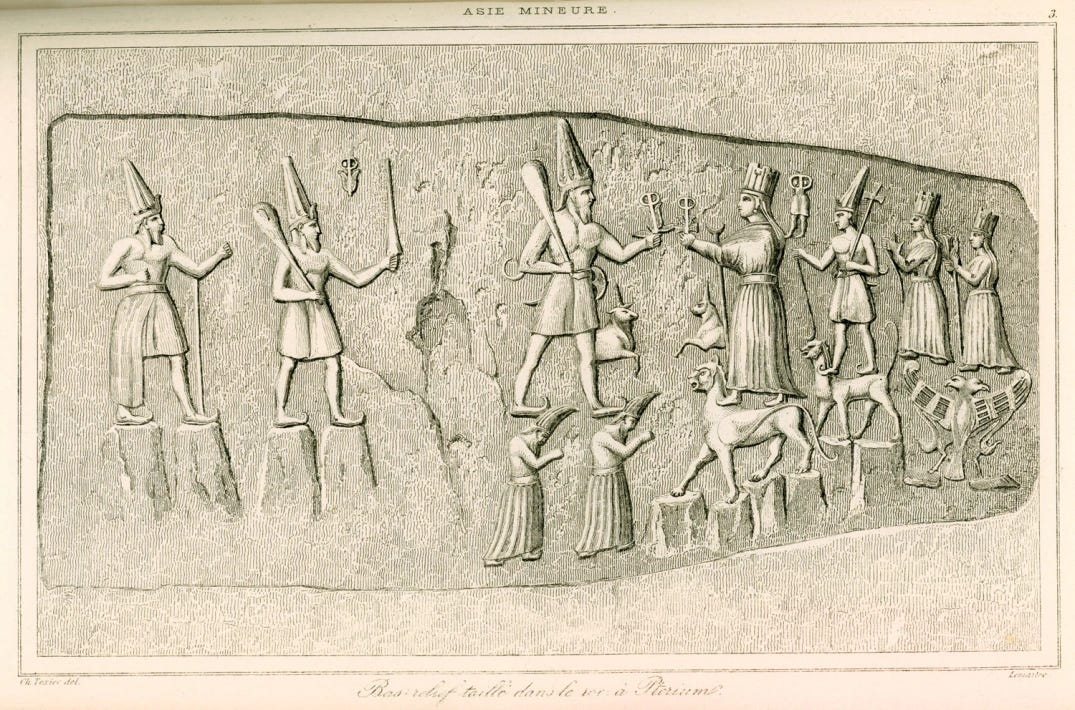 ASIE MINEURE.
3.
Ch. Texier del.
Lemaitre
Bas-relief taillé dans le roc à Pterium.